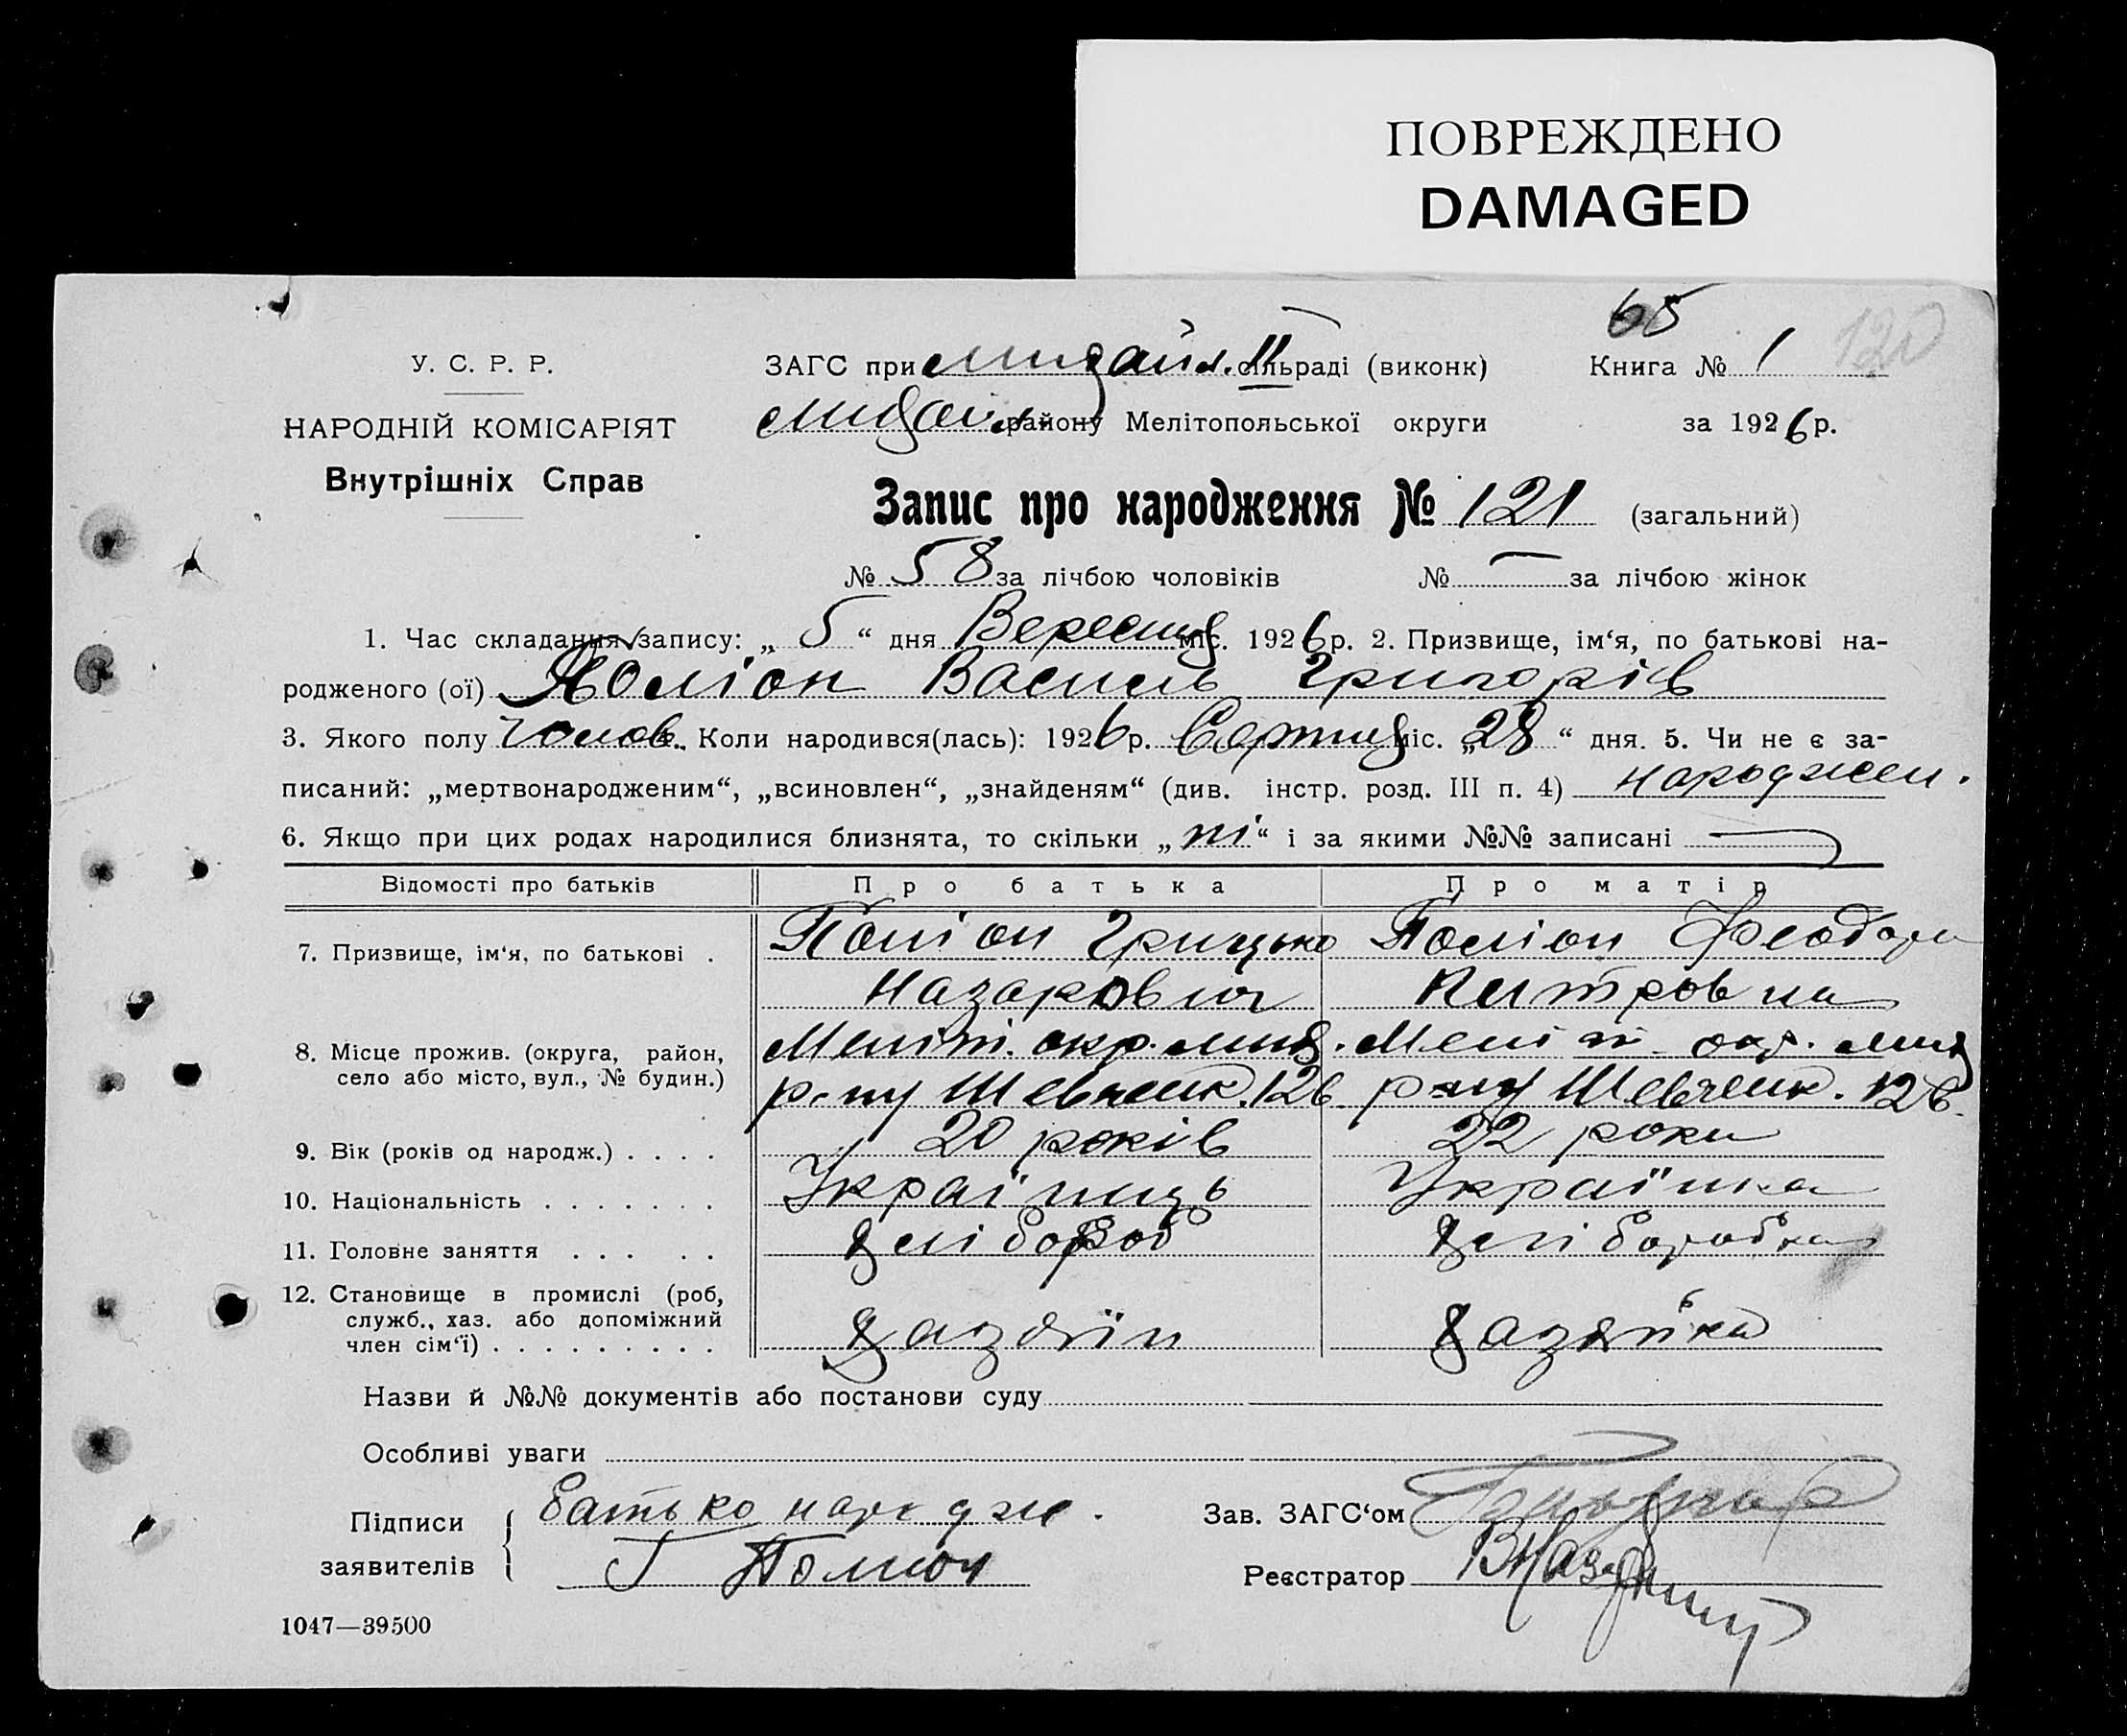 ПОВРЕЖДЕНО
DAMAGED
65
120
У. С. Р. Р.
НАРОДНІЙ КОМІСАРІЯТ
Внутрішніх Справ
ЗАГС при михайл. II сільраді (виконк)
Книга № 1
михайл. району Мелітопольської округи
за 1926 р.
Запис про народження № 121 (загальний)
№ 58 за лічбою чоловіків № — за лічбою жінок
1. Час складання запису: „ 5 “ дня Вересня міс. 1926 р. 2. Призвище, ім‘я, по батькові на-
родженого (ої) Поліон Василь Григорів
3. Якого полу Чолов. Коли народився(лась): 1926 р. Серпня міс. „28“ дня. 5. Чи не є за-
писаний: „мертвонародженим“, „всиновлен“, „знайденям“ (див. інстр. розд. III п. 4) народжен.
6. Якщо при цих родах народилися близнята, то скільки „ні“ і за якими №№ записані —
Відомості про батьків Про батька Про матір
7. Призвище, ім‘я, по батькові . Поліон Грицько Поліон Феодора
Назарович Питровна
8. Місце прожив. (округа, район, Меліт. окр. мих. Меліт. окр. мих
село або місто, вул., № будин.) р-ну Шевченк. 126 р-ну Шевченк. 126.
9. Вік (років од народж.) . . . . 20 років 22 роки
10. Національність . . . . . . . Українць Українка
11. Головне заняття . . . . . хлібороб хліборобка
12. Становище в промислі (роб,
служб., хаз. або допоміжний
член сім‘ї) . . . . . . . . . хазяїн хазяйка
Назви й №№ документів або постанови суду
Особливі уваги
Підписи
заявителів
батько народж.
Г Поліон
Зав. ЗАГС‘ом
Реєстратор
1047—39500